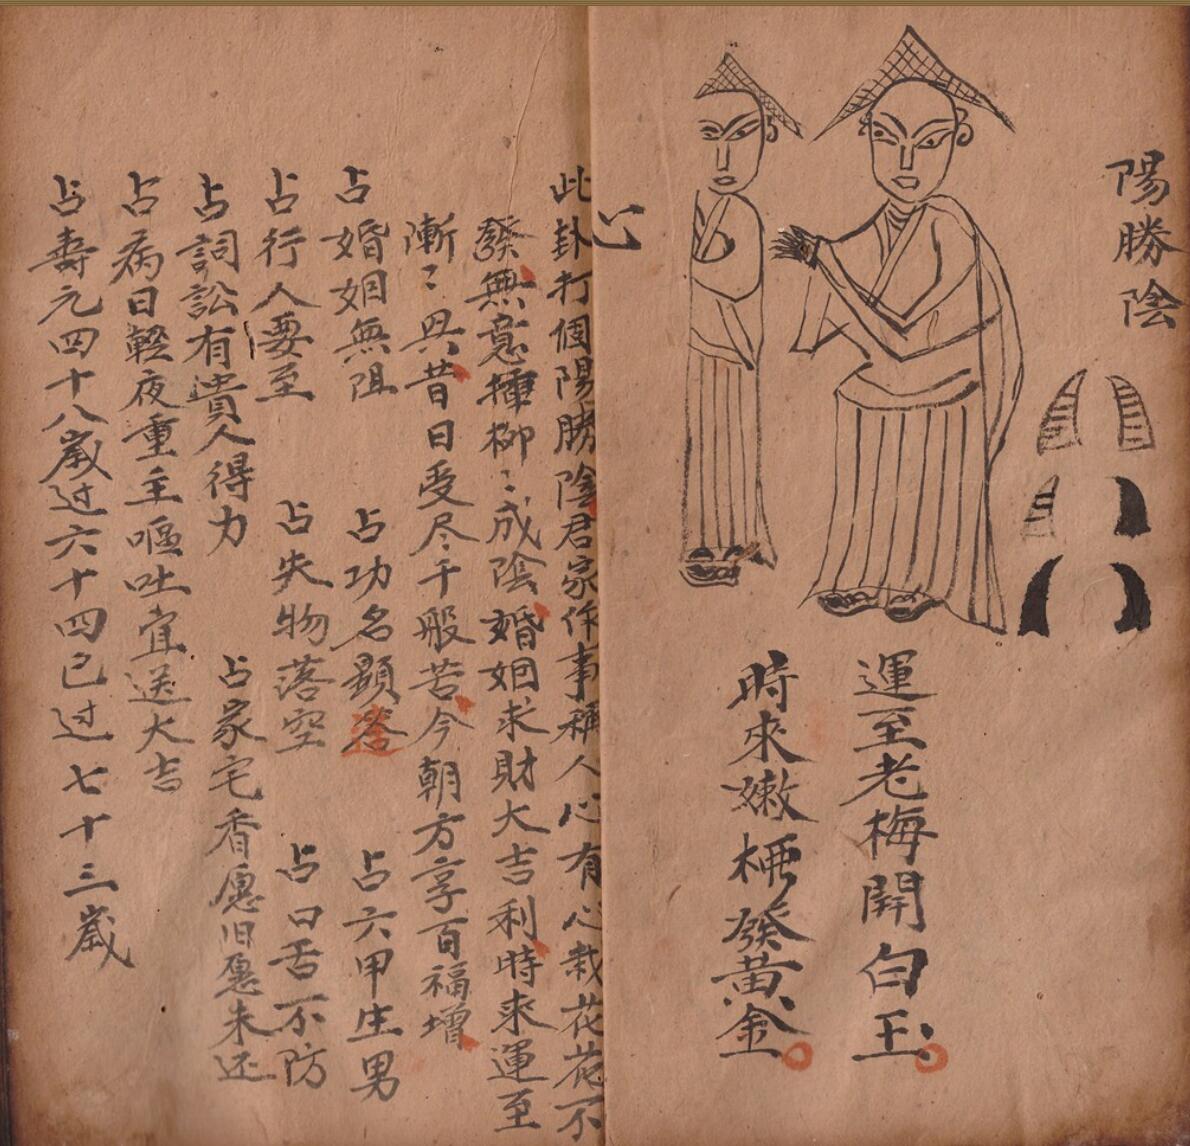 陽勝陰
運至老梅開白玉
時來嫩柳發黃金
心
此卦打個陽勝陰君家作事稱人心有心栽花花不
發無意揷柳〻成陰婚姻求財大吉利時來運至
漸〻興昔日受尽千般苦今朝方享百福增
占婚姻無阻 占功名顯答 占六甲生男
占行人要至 占失物落空 占口舌不防
占詞訟有貴人得力 占家宅香愿旧愿未还
占病日輕夜重主嘔吐宜送大吉
占壽元四十八歲过六十四已过七十三歲